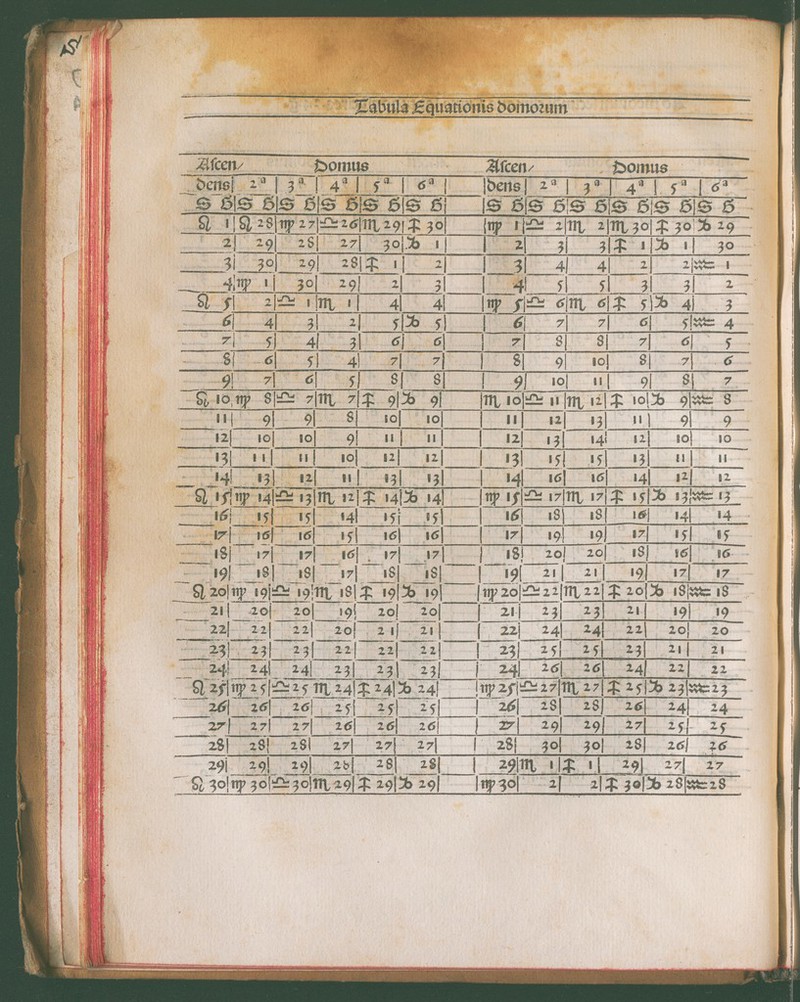 Tabula Equationis domorum
Ascen⸗ Domus Ascen⸗ Domus
dens 2ª 3ª 4ª 5ª 6ª dens 2ª 3ª 4ª 5ª 6ª
S G S G S G S G S G S G S G S G S G S G S G S G
♌ 1 ♌ 28 ♍ 27 ♎ 26 ♏ 29 ♐ 30 ♍ 1 ♎ 2 ♏ 2 ♏ 30 ♐ 30 ♑ 29
2 29 28 27 30 ♑ 1 2 3 3 ♐ 1 ♑ 1 30
3 30 29 28 ♐ 1 2 3 4 4 2 2 ♒ 1
4 ♍ 1 30 29 2 3 4 5 5 3 3 2
♌ 5 2 ♎ 1 ♏ 1 4 4 ♍ 5 ♎ 6 ♏ 6 ♐ 5 ♑ 4 3
6 4 3 2 5 ♑ 5 6 7 7 6 5 ♒ 4
7 5 4 3 6 6 7 8 8 7 6 5
8 6 5 4 7 7 8 9 10 8 7 6
9 7 6 5 8 8 9 10 11 9 8 7
♌ 10 ♍ 8 ♎ 7 ♏ 7 ♐ 9 ♑ 9 ♏ 10 ♎ 11 ♏ 12 ♐ 10 ♑ 9 ♒ 8
11 9 9 8 10 10 11 12 13 11 9 9
12 10 10 9 11 11 12 13 14 12 10 10
13 11 11 10 12 12 13 15 15 13 11 11
14 13 12 11 13 13 14 16 16 14 12 12
♌ 15 ♍ 14 ♎ 13 ♏ 12 ♐ 14 ♑ 14 ♍ 15 ♎ 17 ♏ 17 ♐ 15 ♑ 13 ♒ 13
16 15 15 14 15 15 16 18 18 16 14 14
17 16 16 15 16 16 17 19 19 17 15 15
18 17 17 16 17 17 18 20 20 18 16 16
19 18 18 17 18 18 19 21 21 19 17 17
♌ 20 ♍ 19 ♎ 19 ♏ 18 ♐ 19 ♑ 19 ♍ 20 ♎ 22 ♏ 22 ♐ 20 ♑ 18 ♒ 18
21 20 20 19 20 20 21 23 23 21 19 19
22 22 22 20 21 21 22 24 24 22 20 20
23 23 23 22 22 22 23 25 25 23 21 21
24 24 24 23 23 23 24 26 26 24 22 22
♌ 25 ♍ 25 ♎ 25 ♏ 24 ♐ 24 ♑ 24 ♍ 25 ♎ 27 ♏ 27 ♐ 25 ♑ 23 ♒ 23
26 26 26 25 25 25 26 28 28 26 24 24
27 27 27 26 26 26 27 29 29 27 25 25
28 28 28 27 27 27 28 30 30 28 26 26
29 29 29 28 28 28 29 ♏ 1 ♐ 1 29 27 27
♌ 30 ♍ 30 ♎ 30 ♏ 29 ♐ 29 ♑ 29 ♍ 30 2 2 ♐ 30 ♑ 28 ♒ 28